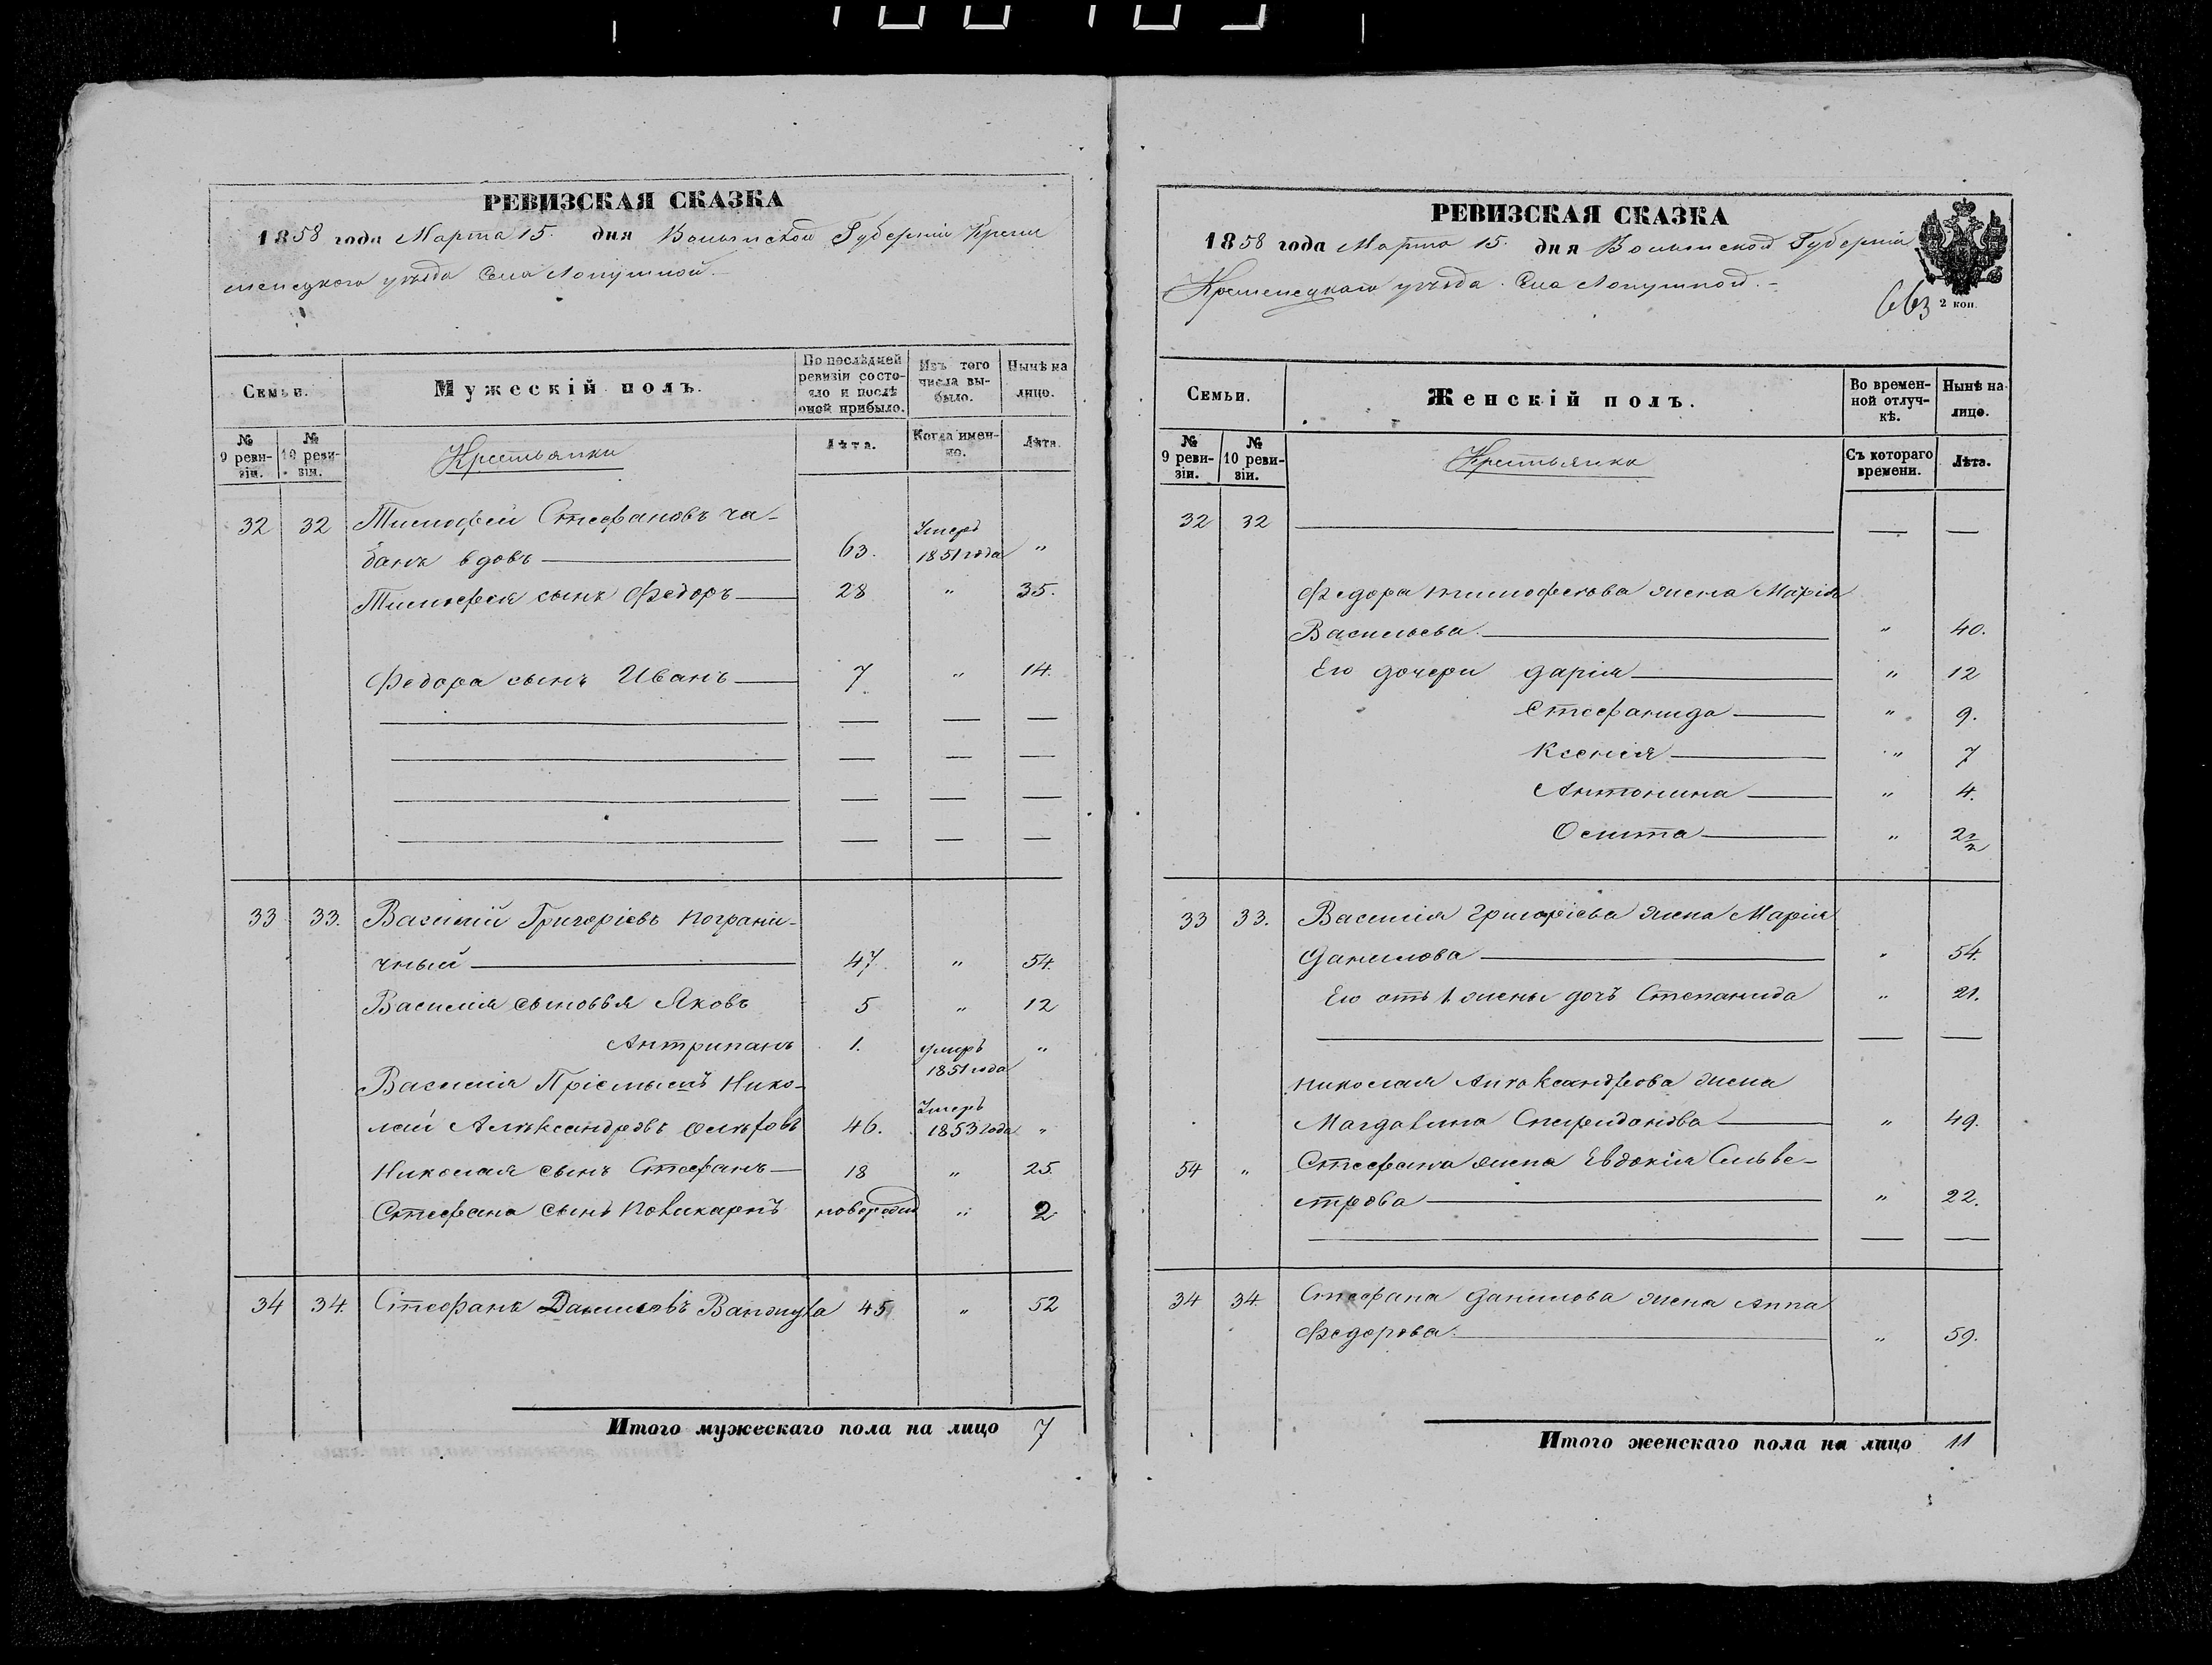 РЕВИЗСКАЯ СКАЗКА
1858 года Марта 15. дня Волынской Губерніи Креме
менецкого уѣзда Села Лопушной.
Семьи.
Мужескій полъ.
По послѣдней ревизіи состояло и послѣ оной прибыло.
Изъ того числа выбыло.
Нынѣ на лицо.
№ 9 ревизіи.
№ 10 ревизіи.
Крестьянки
Лѣта.
Когда именно.
Лѣта.
32 32 Тимофей Стефановъ ча-
банъ вдовъ 63. Умеръ 1851 года "
Тимофея сынъ Федоръ 28 " 35.
Федора сынъ Иванъ 7 " 14.
33 33. Василій Григоріевъ пограни-
чный 47 " 54.
Василія сыновья Яковъ 5 " 12
Антрипанъ 1. умеръ 1851 года "
Василія Пріемышъ Нико-
лай Алѣксандровъ 46. Умеръ 1853 года "
Николая сынъ Стефанъ 18 " 25.
Стефана сынъ Поликарпъ новорожд " 2
34 34. Стефанъ Даниловъ Ванжула 45 " 52
Итого мужескаго пола на лицо 7
РЕВИЗСКАЯ СКАЗКА
1858 года Марта 15. дня Волынской Губерніи
Кременецкаго уѣзда. Села Лопушной.
663 2 коп.
Семьи.
Женскій полъ.
Во временной отлучкѣ.
Нынѣ на лицо.
№ 9 ревизіи.
№ 10 ревизіи.
Крестьянки
Съ котораго времени.
Лѣта.
32 32
Федора тимофеева жена Марія
Васильева " 40.
Его дочери дарія " 12
Стефанида " 9.
Ксенія " 7
Антонина " 4.
" 2
33 33. Василія григоріева жена Марія
Данилова " 54.
Его отъ 1 жены дочь Степанида " 21.
николая Александрова жена
Магдалина Спиридонова " 49.
54 " Стефана жена Евдокія Сильве-
строва " 22.
34 34. Стефана данилова жена Анна
Федорова " 59.
Итого женскаго пола на лицо 11